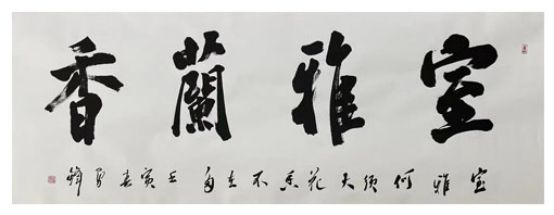 室雅蘭香
室雅何須大花香不在多壬寅春勇輝